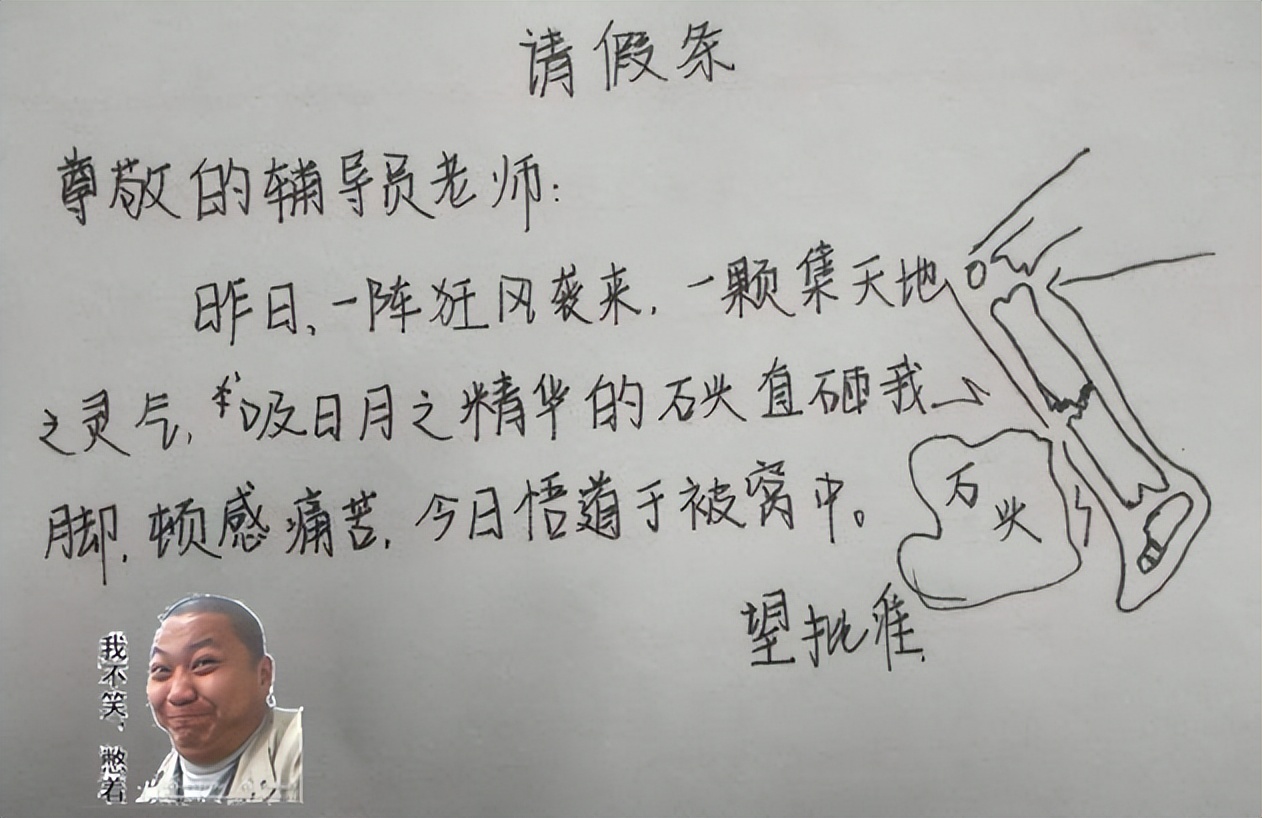 请假条
尊敬的辅导员老师:
昨日,一阵狂风袭来,一颗集天地
之灵气,吸日月之精华的石头直砸我
脚,顿感痛苦,今日悟道于被窝中。
石头
望批准
我不笑,憋着